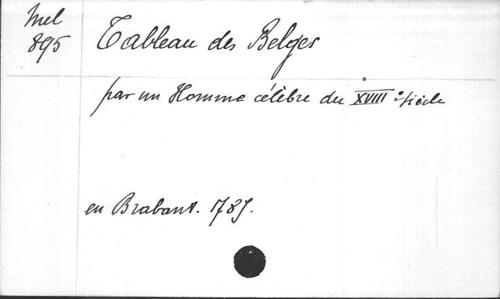 Mel
895
Tableau des Belges
par un Homme célèbre du XVIII e siècle
en Brabant. 1789.